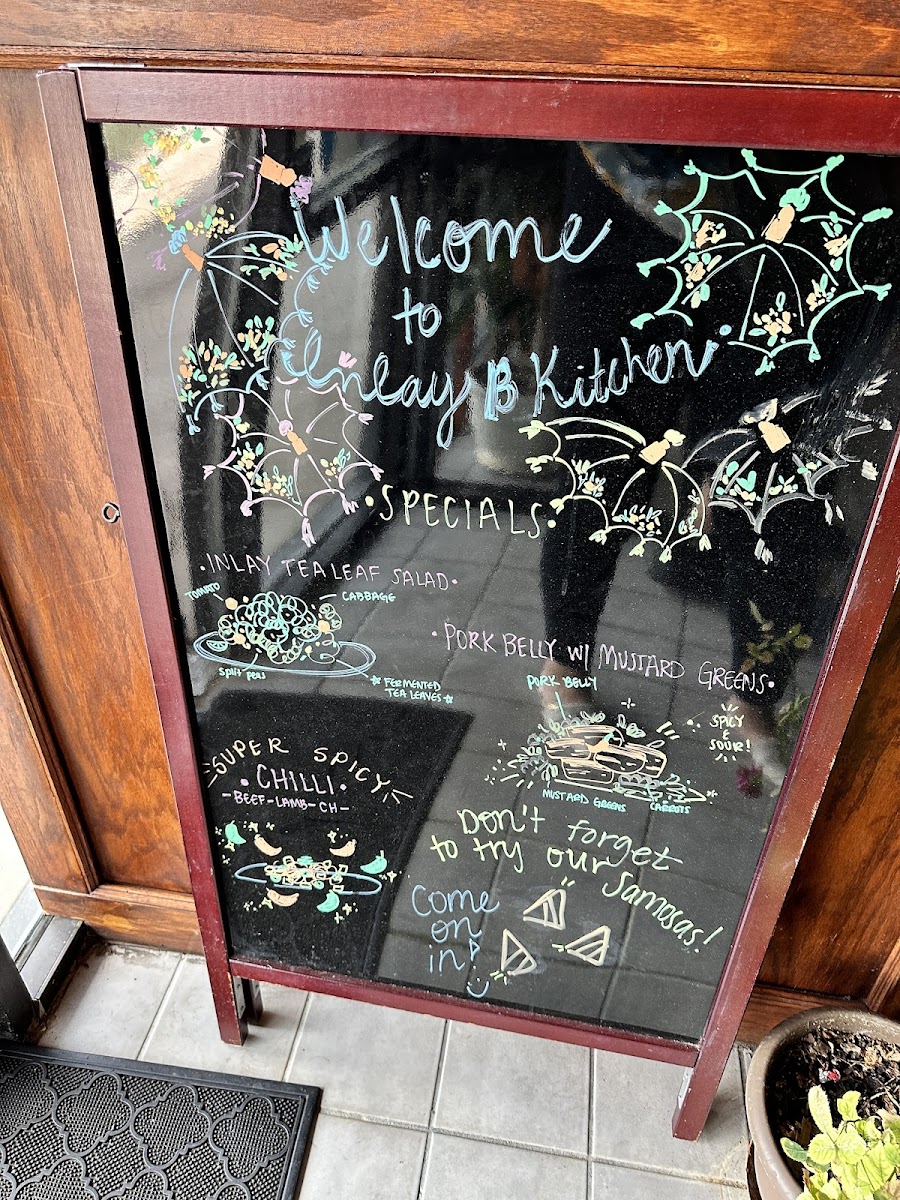 Welcome
to
Inlay B Kitchen
·SPECIALS·
·INLAY TEA LEAF SALAD·
TOMATO
CABBAGE
Split peas
FERMENTED
TEA LEAVES
·PORK BELLY W/ MUSTARD GREENS·
PORK BELLY
SPICY
&
SOUR!
MUSTARD GREENS
CARROTS
SUPER SPICY
·CHILLI·
-BEEF-LAMB-CH-
Don't forget
to try our
Samosas!
Come
on
in!